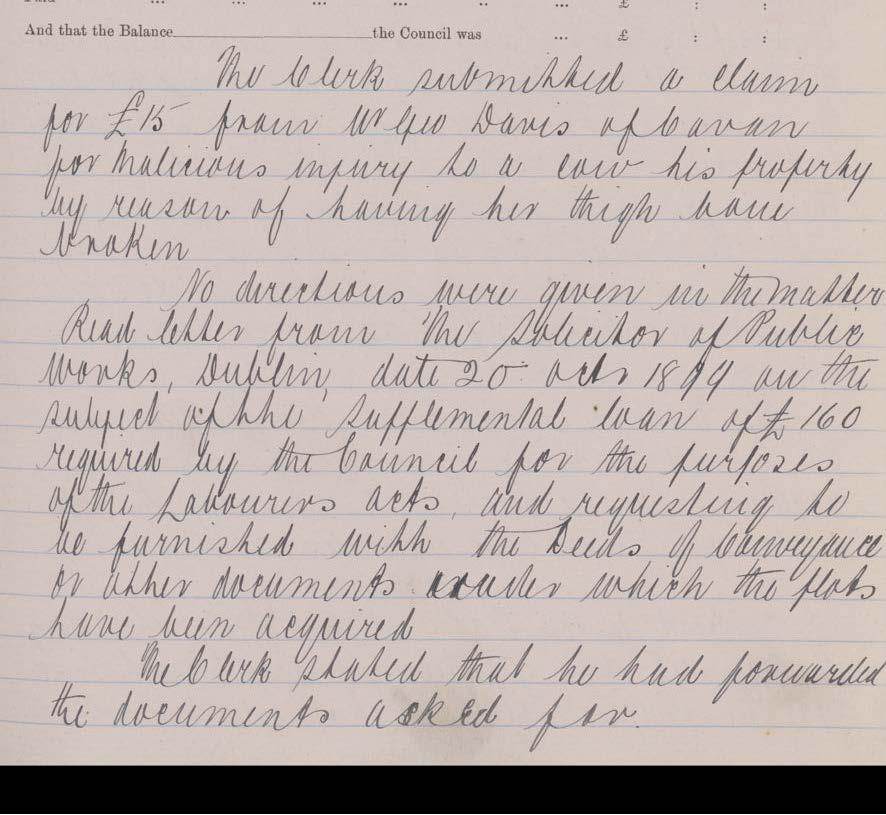 And that the Balance the Council was ... £ : :
The Clerk submitted a claim
for £15 from Mr Geo Davis of Cavan
for Malicious injury to a cow his property
by reason of having her thigh bone
broken
No directions were given in the matter
Read letter from The Solicitor of Public
Works, Dublin, date 20 1899 on the
subject of the Supplemental loan of £160
required by the Council for the purposes
of the Labourers acts, and requesting to
be furnished with the Deeds of Conveyance
or other documents under which the plots
have been acquired
The Clerk stated that he had forwarded
the documents asked for.